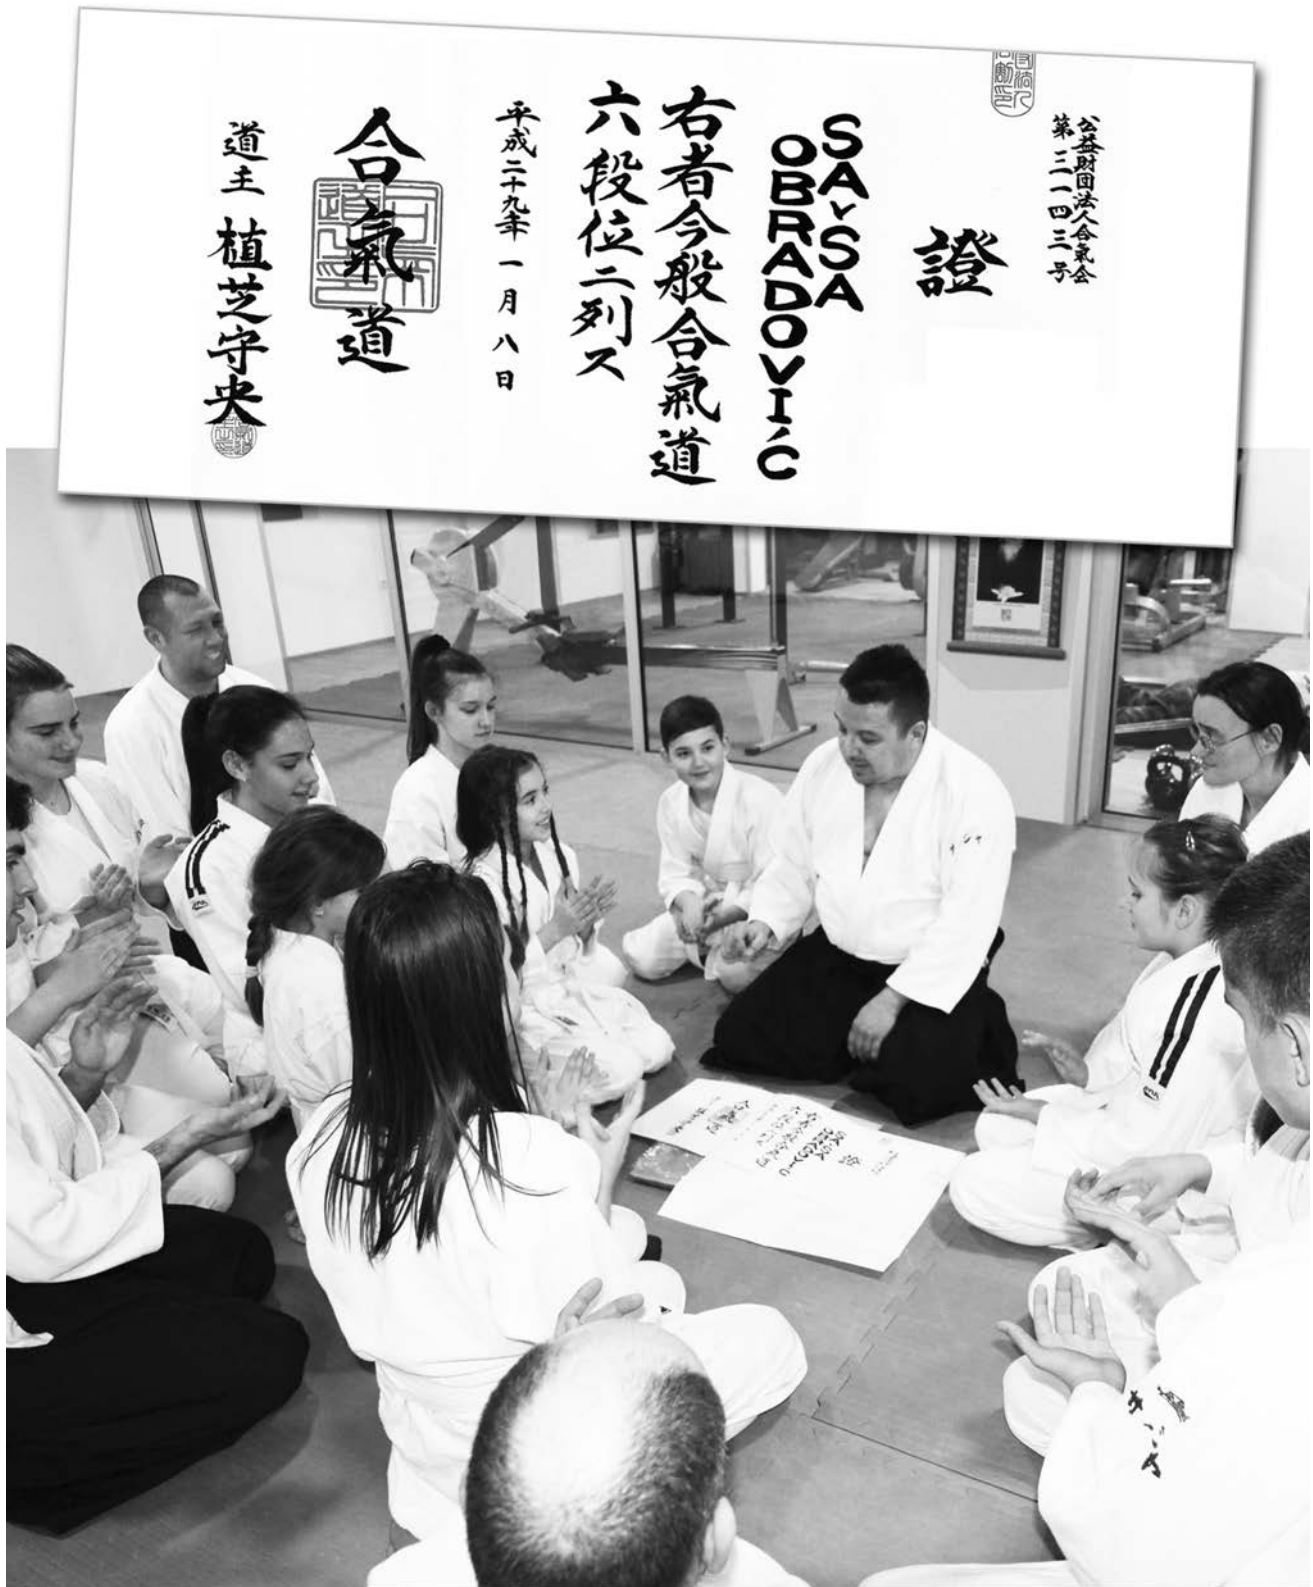 公益財団法人合氣会
第三一四三号
證
SAˇSA
OBRADOVIĆ
右者今般合氣道
六段位ニ列ス
平成二十九年一月八日
合氣道
道主 植芝守央